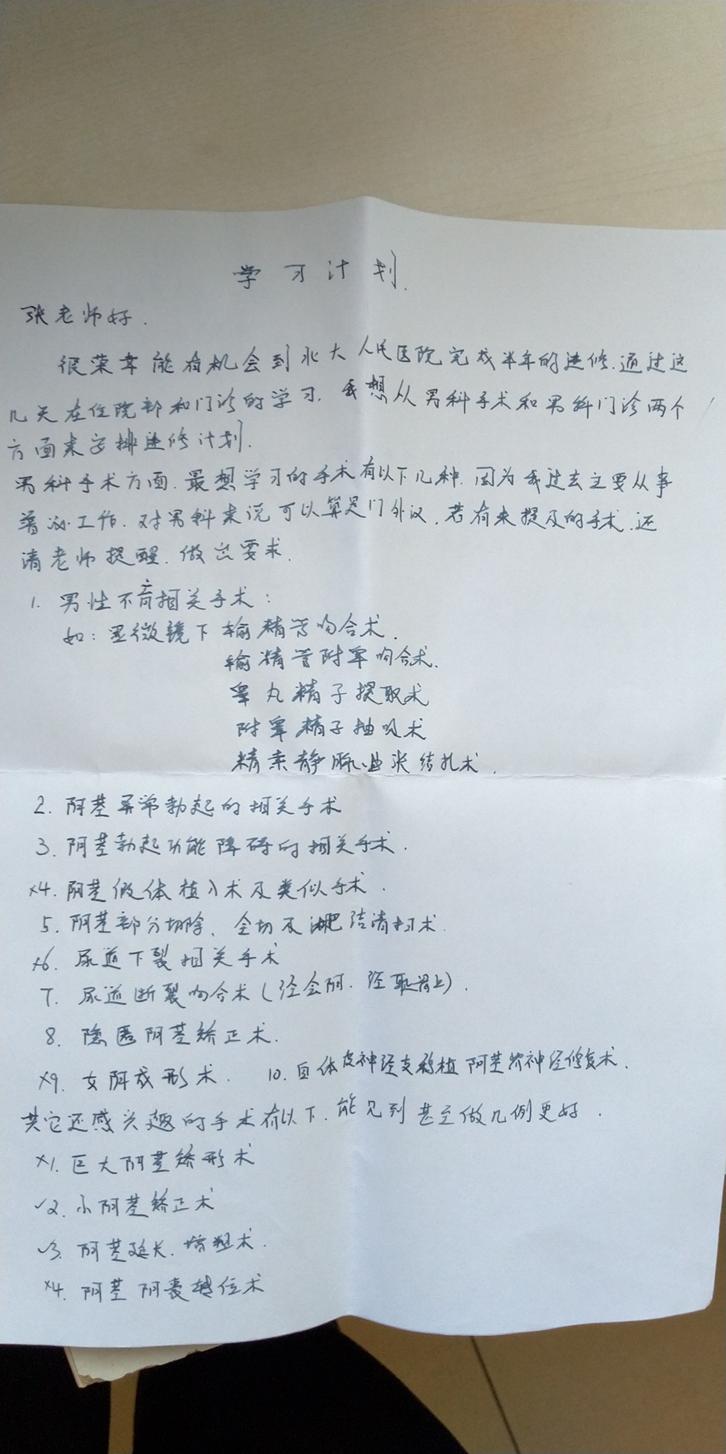 学习计划.
张老师好.
很荣幸能有机会到北大人民医院完成半年的进修.通过这
几天在住院部和门诊的学习.我想从男科手术和男科门诊两个
方面来安排进修计划.
男科手术方面.最想学习的手术有以下几种.因为我过去主要从事
普泌工作.对男科来说可以算是门外汉.若有未提及的手术.还
请老师提醒.做出要求.
1. 男性不育相关手术:
如:显微镜下输精管吻合术.
输精管附睾吻合术.
睾丸精子提取术
附睾精子抽吸术
精索静脉曲张结扎术.
2. 阴茎异常勃起的相关手术
3. 阴茎勃起功能障碍的相关手术.
×4. 阴茎假体植入术及类似手术.
5. 阴茎部分切除、全切及淋巴结清扫术.
×6. 尿道下裂相关手术
7. 尿道断裂吻合术(经会阴.经耻骨上).
8. 隐匿阴茎矫正术.
×9. 女阴成形术. 10. 自体皮神经支移植阴茎背神经修复术.
其它还感兴趣的手术有以下.能见到甚至做几例更好.
×1. 巨大阴茎矫形术
✓2. 小阴茎矫正术
✓3. 阴茎延长.增粗术.
×4. 阴茎阴囊转位术